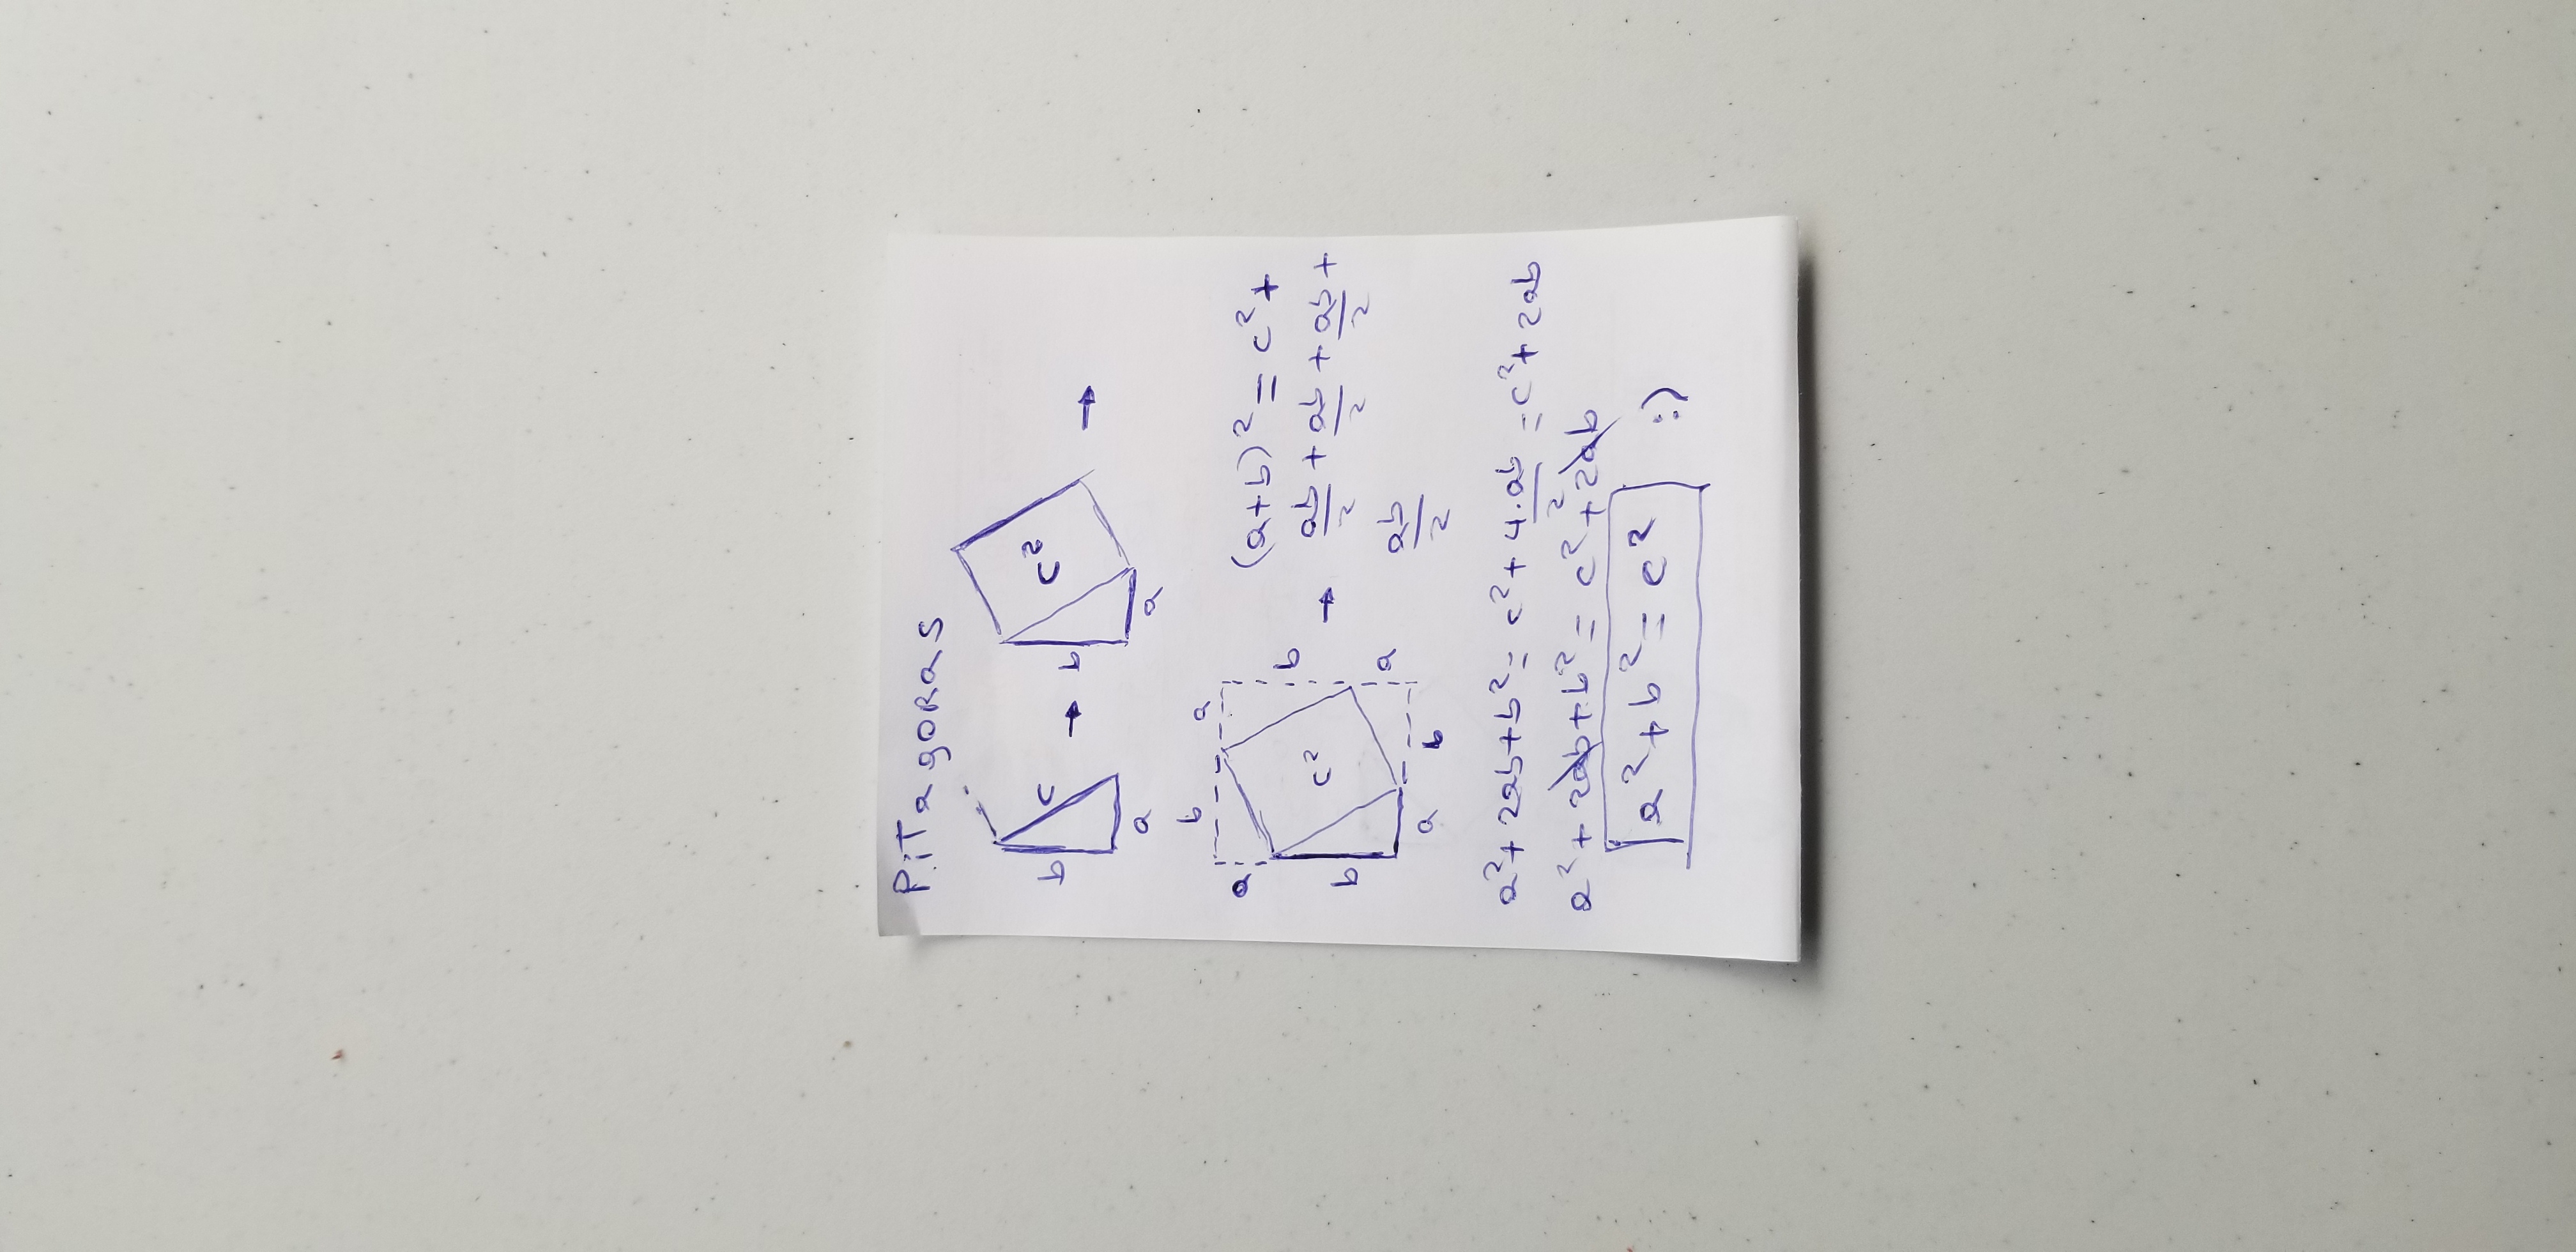 PiTagoRas
b c → b c² →
a a
b a
a
(a+b)² = c²+
c² b
b → ab/2 + ab/2 + ab/2 +
a
a b
ab/2
a²+2ab+b² = c²+ 4.ab/2 = c²+2ab
a²+2ab+b² = c²+2ab
a²+b² = c² :)